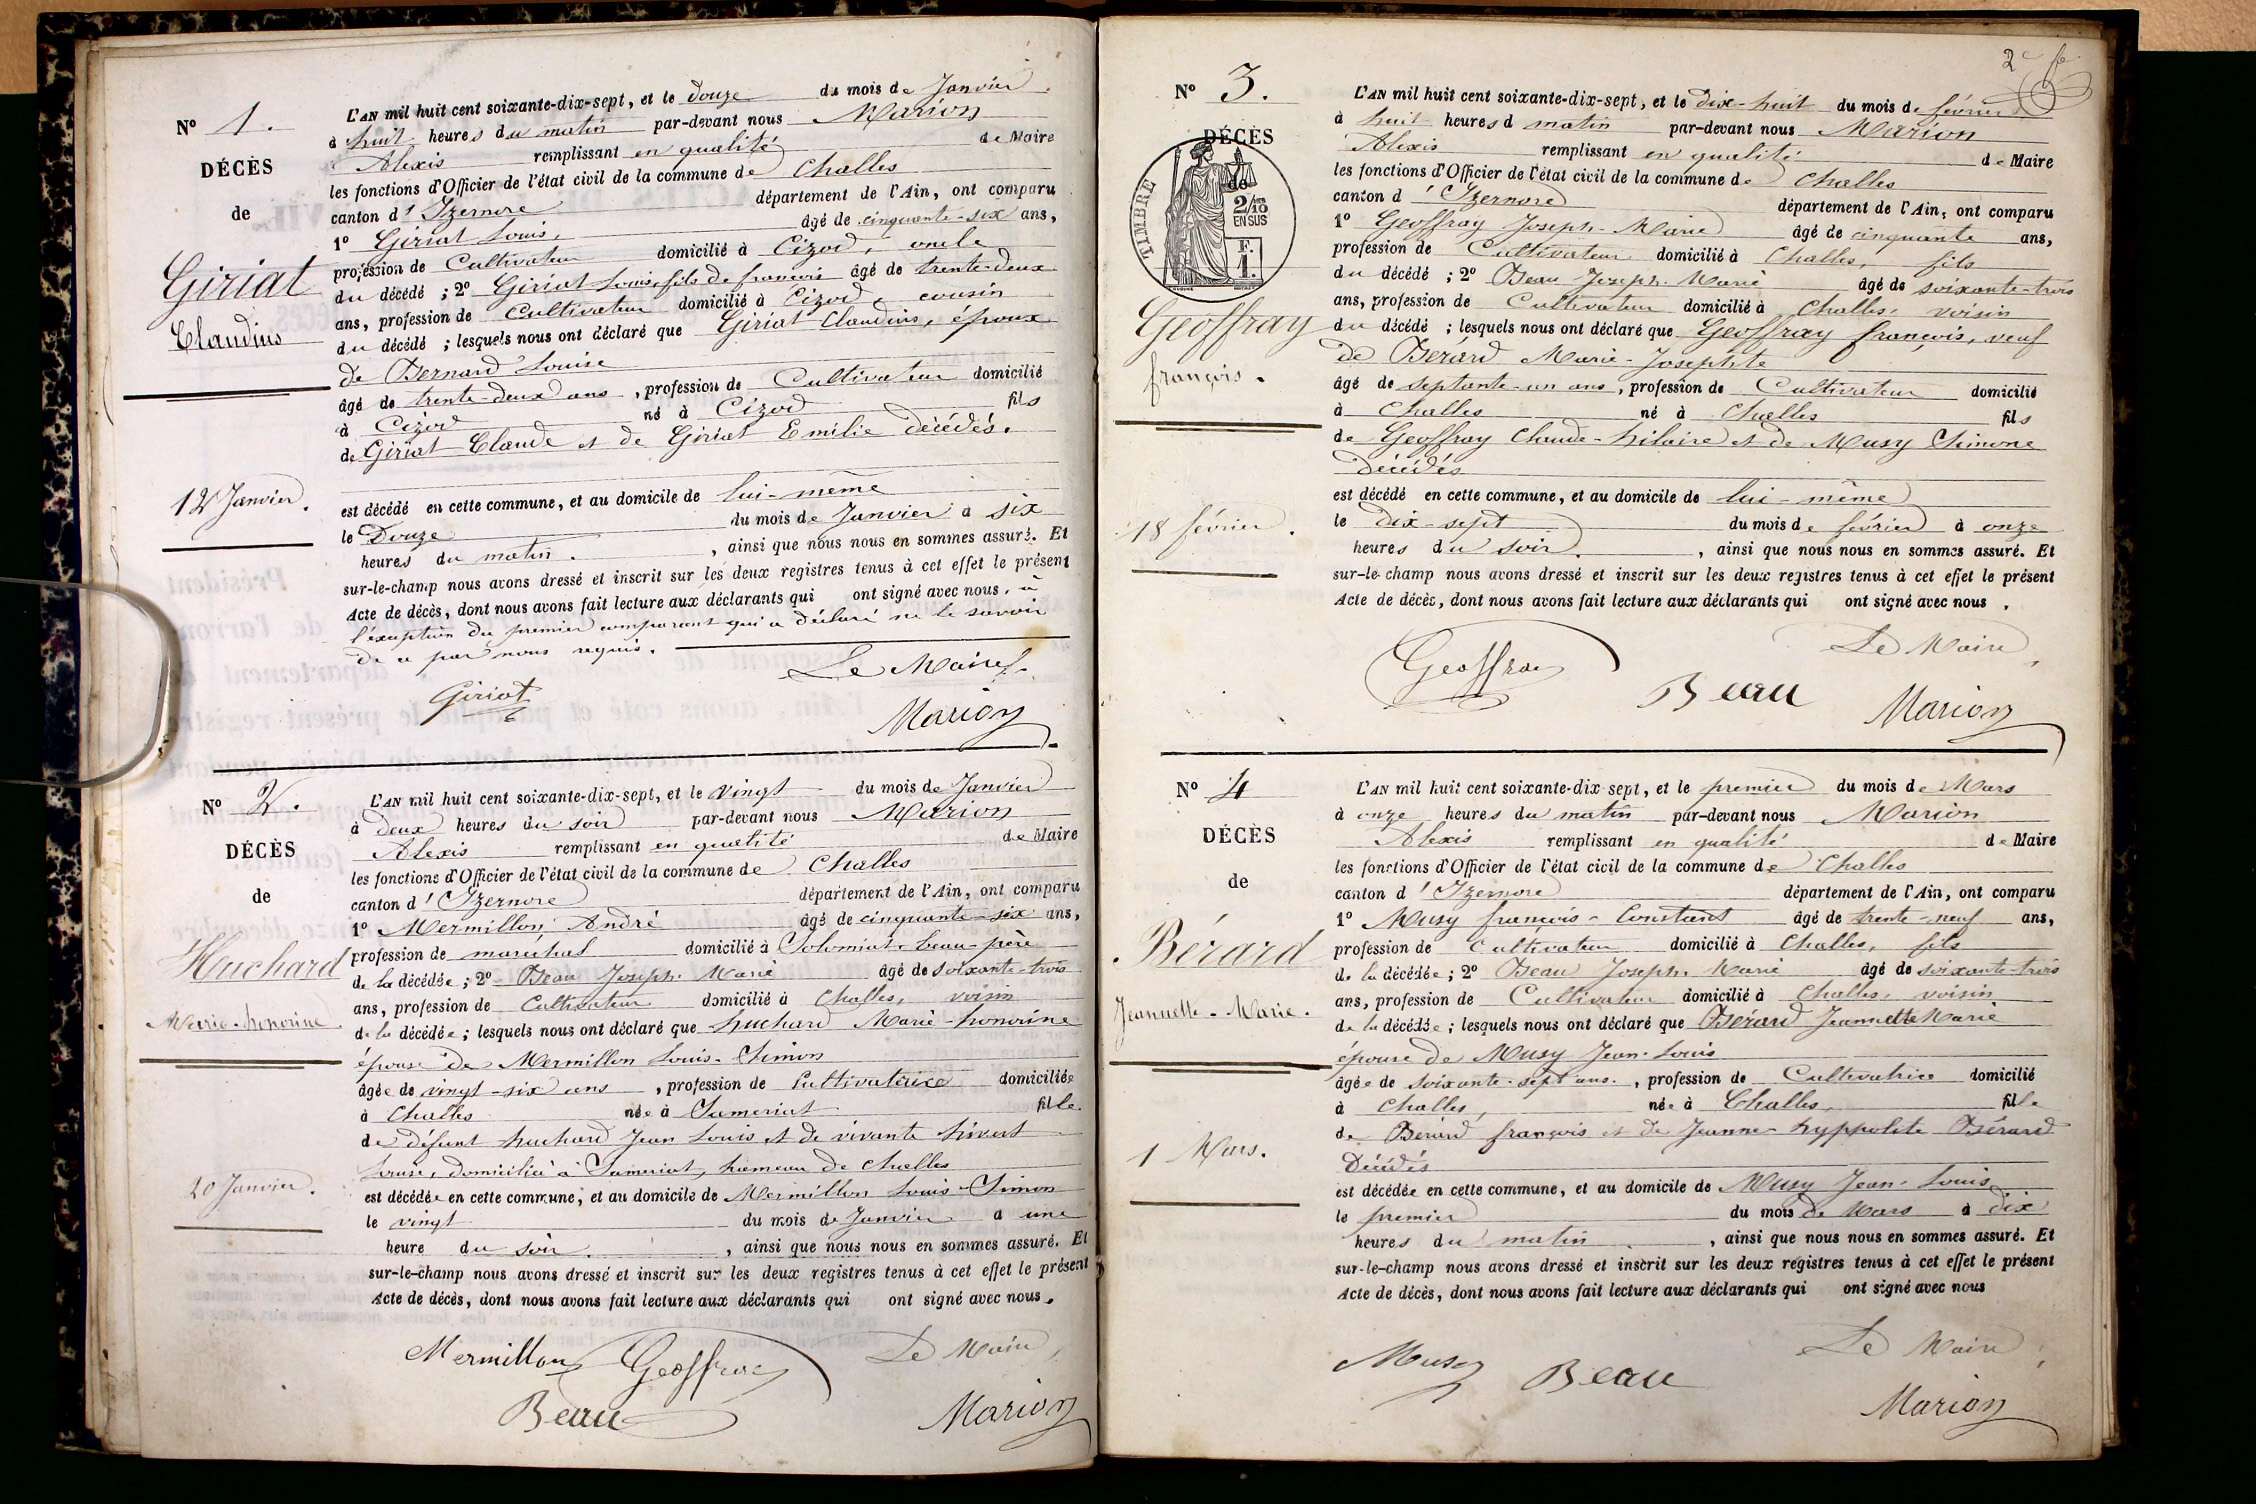 N° 1.
DÉCÈS
de
Giriat
Claudius
12 Janvier.
L'AN mil huit cent soixante-dix-sept, et le douze du mois de Janvier
à huit heures du matin par-devant nous Marion
Alexis remplissant en qualité de Maire
les fonctions d'Officier de l'état civil de la commune de Challes
canton d' Izernore département de l'Ain, ont comparu
1° Giriat Louis, âgé de cinquante-six ans,
profession de Cultivateur domicilié à Cizod, oncle
du décédé ; 2° Giriat Louis fils de françois âgé de trente-deux
ans, profession de Cultivateur domicilié à Cizod, cousin
du décédé ; lesquels nous ont déclaré que Giriat Claudius, époux
de Bernard Louise
âgé de trente-deux ans, profession de Cultivateur domicilié
à Cizod né à Cizod fils
de Giriat Claude et de Giriat Emilie décédés.
est décédé en cette commune, et au domicile de lui-même
le Douze du mois de Janvier à six
heures du matin. , ainsi que nous nous en sommes assuré. Et
sur-le-champ nous avons dressé et inscrit sur les deux registres tenus à cet effet le présent
Acte de décès, dont nous avons fait lecture aux déclarants qui ont signé avec nous, à
l'exception du premier comparant qui a déclaré ne le savoir
de ce par nous requis.
Le Maire
Giriat
Marion
N° 2.
DÉCÈS
de
Huchard
Marie-honorine
20 Janvier.
L'AN mil huit cent soixante-dix-sept, et le vingt du mois de Janvier
à deux heures du soir par-devant nous Marion
Alexis remplissant en qualité de Maire
les fonctions d'Officier de l'état civil de la commune de Challes
canton d' Izernore département de l'Ain, ont comparu
1° Mermillon André âgé de cinquante-six ans,
profession de maréchal domicilié à Solomiat, beau-père
de la décédée ; 2° Beau Joseph-Marie âgé de soixante-trois
ans, profession de Cultivateur domicilié à Challes, voisin
de la décédée ; lesquels nous ont déclaré que huchard Marie-honorine
épouse de Mermillon Louis-Simon
âgée de vingt-six ans, profession de Cultivatrice domiciliée
à Challes née à Sameriat fille
de défunt huchard Jean Louis et de vivante hivert
Louise, domiciliée à Sameriat, hameau de Challes
est décédée en cette commune, et au domicile de Mermillon Louis-Simon
le vingt du mois de Janvier à une
heure du soir. , ainsi que nous nous en sommes assuré. Et
sur-le-champ nous avons dressé et inscrit sur les deux registres tenus à cet effet le présent
Acte de décès, dont nous avons fait lecture aux déclarants qui ont signé avec nous.
Mermillon Geoffray Le Maire,
Beau Marion
2e
N° 3.
DÉCÈS
de
TIMBRE
2/10
EN SUS
F.
1.
Geoffray
françois.
18 février.
L'AN mil huit cent soixante-dix-sept, et le dix-huit du mois de février
à huit heures d matin par-devant nous Marion
Alexis remplissant en qualité de Maire
les fonctions d'Officier de l'état civil de la commune de Challes
canton d' Izernore département de l'Ain, ont comparu
1° Geoffray Joseph-Marie âgé de cinquante ans,
profession de Cultivateur domicilié à Challes, fils
du décédé ; 2° Beau Joseph-Marie âgé de soixante-trois
ans, profession de Cultivateur domicilié à Challes, voisin
du décédé ; lesquels nous ont déclaré que Geoffray françois, veuf
de Berard Marie-Josephte
âgé de septante-un ans, profession de Cultivateur domicilié
à Challes né à Challes fils
de Geoffray Claude-hilaire et de Musy Simone
décédés
est décédé en cette commune, et au domicile de lui-même
le dix-sept du mois de février à onze
heures du soir. , ainsi que nous nous en sommes assuré. Et
sur-le-champ nous avons dressé et inscrit sur les deux registres tenus à cet effet le présent
Acte de décès, dont nous avons fait lecture aux déclarants qui ont signé avec nous.
Le Maire,
Geoffray Beau Marion
N° 4
DÉCÈS
de
Bérard
Jeannette-Marie.
1 Mars.
L'AN mil huit cent soixante-dix-sept, et le premier du mois de Mars
à onze heures du matin par-devant nous Marion
Alexis remplissant en qualité de Maire
les fonctions d'Officier de l'état civil de la commune de Challes
canton d' Izernore département de l'Ain, ont comparu
1° Musy françois-Constant âgé de trente-neuf ans,
profession de Cultivateur domicilié à Challes, fils
de la décédée ; 2° Beau Joseph-Marie âgé de soixante-trois
ans, profession de Cultivateur domicilié à Challes, voisin
de la décédée ; lesquels nous ont déclaré que Bérard Jeannette Marie
épouse de Musy Jean-Louis
âgée de soixante-sept ans, profession de Cultivatrice domicilié
à Challes, née à Challes, fille
de Bérard françois et de Jeanne-hyppolite Bérard
décédés
est décédée en cette commune, et au domicile de Musy Jean-Louis
le premier du mois de Mars à dix
heures du matin. , ainsi que nous nous en sommes assuré. Et
sur-le-champ nous avons dressé et inscrit sur les deux registres tenus à cet effet le présent
Acte de décès, dont nous avons fait lecture aux déclarants qui ont signé avec nous
Le Maire,
Musy Beau Marion